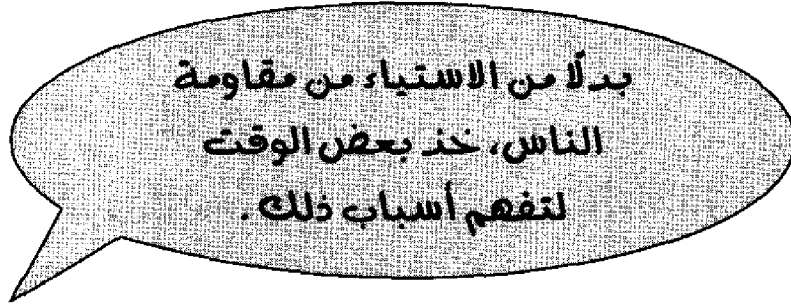 بدلًا من الاستياء من مقاومة
الناس، خذ بعض الوقت
لتفهم أسباب ذلك.